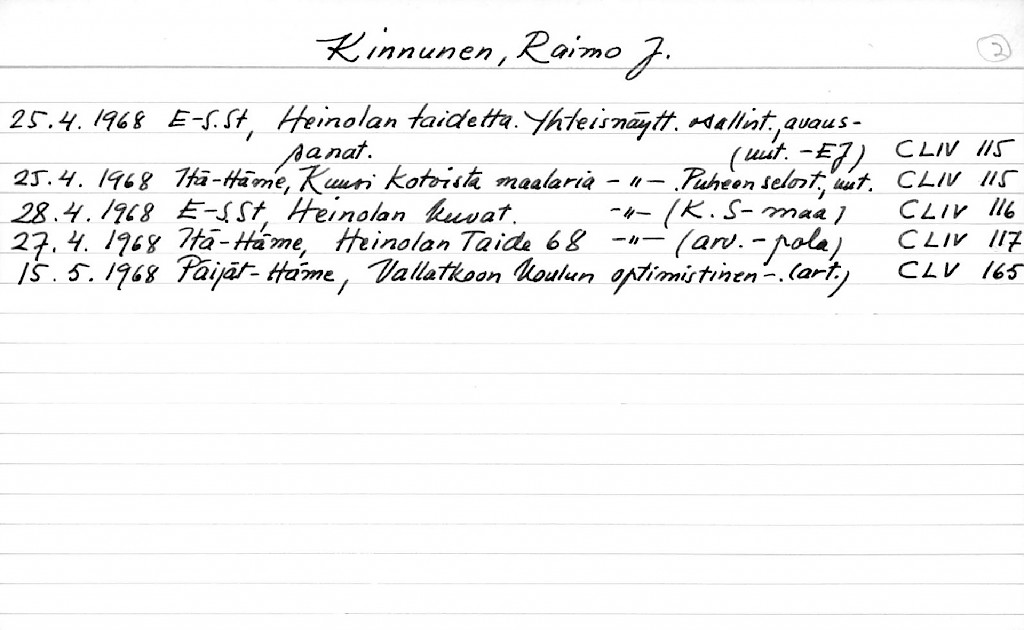 Kinnunen, Raimo J. 2
25.4.1968 E-S.St, Heinolan taidetta. Yhteisnäytt. osallist., avaus-
sanat. (uut. -EJ) CLIV 115
25.4.1968 Itä-Häme, Kuusi kotoista maalaria -"- . Puheen selost., uut. CLIV 115
28.4.1968 E-SSt, Heinolan kuvat. -"- (K.S-maa) CLIV 116
27.4.1968 Itä-Häme, Heinolan Taide 68 -"- (arv. -pola) CLIV 117
15.5.1968 Päijät-Häme, Vallatkoon koulun optimistinen -. (art.) CLV 165